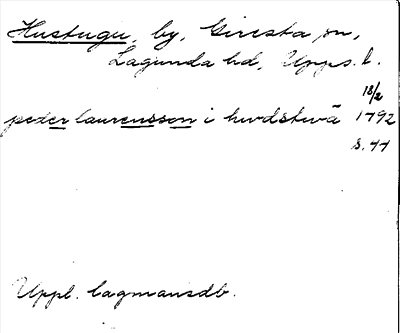 Hustugu, by, Giresta sn,
Lagunda hd, Upps. l.
18/2
peder laurensson i hwdstwä 1492
s. 44
Uppl. lagmansdb.